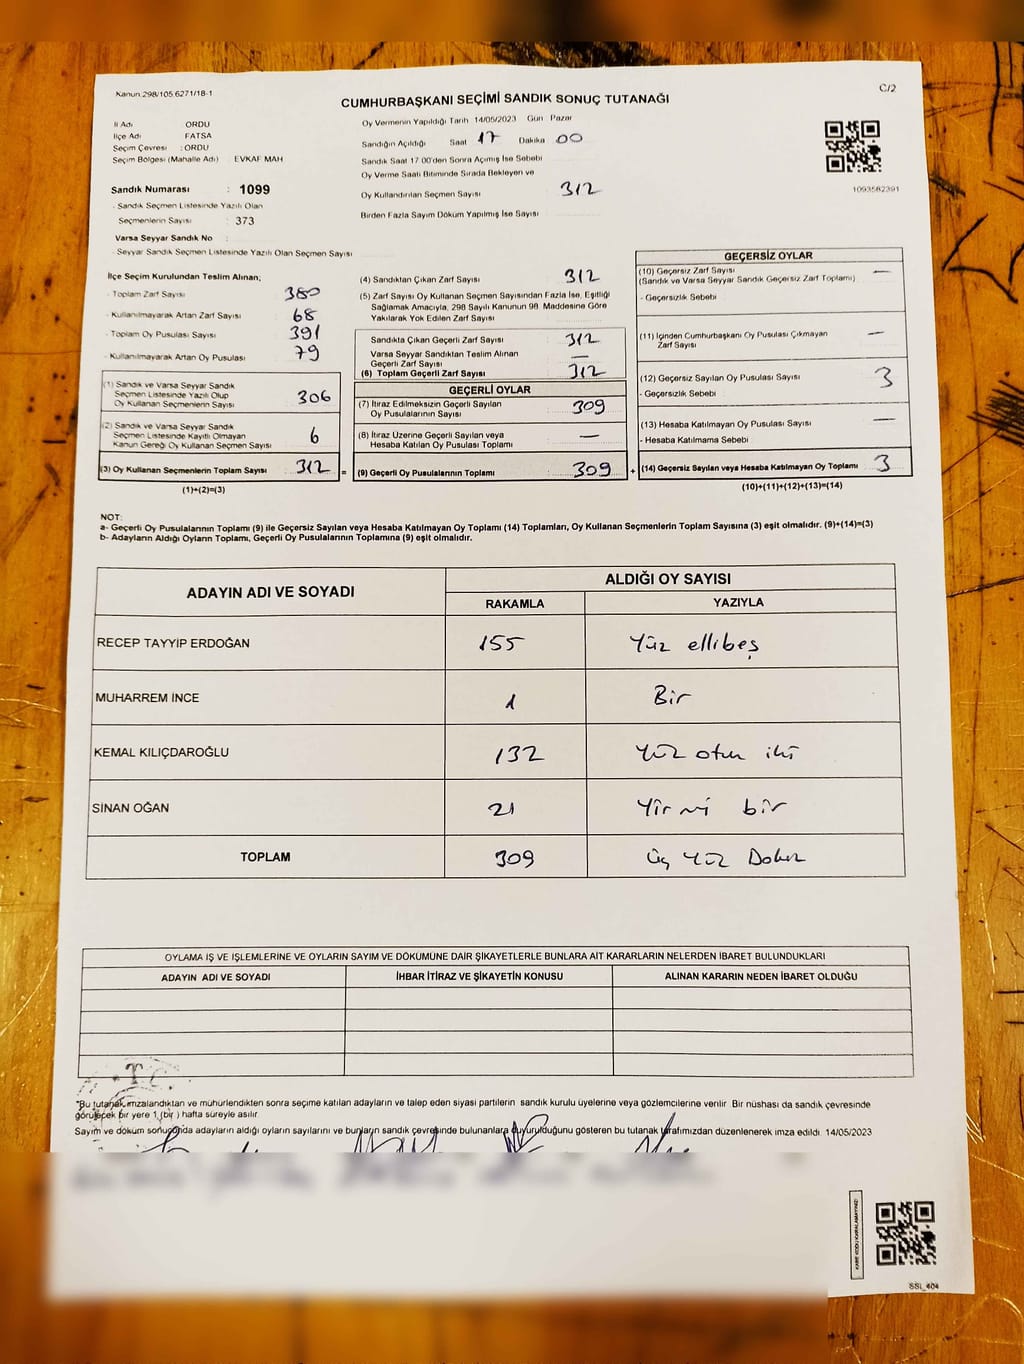 Kanun:298/105,6271/18-1
C/2
CUMHURBAŞKANI SEÇİMİ SANDIK SONUÇ TUTANAĞI
İl Adı ORDU
İlçe Adı FATSA
Seçim Çevresi : ORDU
Seçim Bölgesi (Mahalle Adı) : EVKAF MAH
Sandık Numarası : 1099
- Sandık Seçmen Listesinde Yazılı Olan
Seçmenlerin Sayısı : 373
Varsa Seyyar Sandık No :
- Seyyar Sandık Seçmen Listesinde Yazılı Olan Seçmen Sayısı
Oy Vermenin Yapıldığı Tarih 14/05/2023 Gün Pazar
Sandığın Açıldığı Saat 17 Dakika 00
Sandık Saat 17:00'den Sonra Açımış İse Sebebi
Oy Verme Saati Bitiminde Sırada Bekleyen ve
Oy Kullandırılan Seçmen Sayısı 312
Birden Fazla Sayım Döküm Yapılmış İse Sayısı
1093582391
İlçe Seçim Kurulundan Teslim Alınan;
- Toplam Zarf Sayısı 380
- Kullanılmayarak Artan Zarf Sayısı 68
- Toplam Oy Pusulası Sayısı 391
- Kullanılmayarak Artan Oy Pusulası 79
(1) Sandık ve Varsa Seyyar Sandık
Seçmen Listesinde Yazılı Olup
Oy Kullanan Seçmenlerin Sayısı 306
(2) Sandık ve Varsa Seyyar Sandık
Seçmen Listesinde Kayıtlı Olmayan
Kanun Gereği Oy Kullanan Seçmen Sayısı 6
(3) Oy Kullanan Seçmenlerin Toplam Sayısı 312 =
(1)+(2)=(3)
(4) Sandıktan Çıkan Zarf Sayısı 312
(5) Zarf Sayısı Oy Kullanan Seçmen Sayısından Fazla İse, Eşitliği
Sağlamak Amacıyla, 298 Sayılı Kanunun 98. Maddesine Göre
Yakılarak Yok Edilen Zarf Sayısı
Sandıkta Çıkan Geçerli Zarf Sayısı 312
Varsa Seyyar Sandıktan Teslim Alınan
Geçerli Zarf Sayısı —
(6) Toplam Geçerli Zarf Sayısı 312
GEÇERLİ OYLAR
(7) İtiraz Edilmeksizin Geçerli Sayılan
Oy Pusulalarının Sayısı 309
(8) İtiraz Üzerine Geçerli Sayılan veya
Hesaba Katılan Oy Pusulaları Toplamı —
(9) Geçerli Oy Pusulalarının Toplamı 309 +
GEÇERSİZ OYLAR
(10) Geçersiz Zarf Sayısı —
(Sandık ve Varsa Seyyar Sandık Geçersiz Zarf Toplamı)
- Geçersizlik Sebebi
(11) İçinden Cumhurbaşkanı Oy Pusulası Çıkmayan —
Zarf Sayısı
(12) Geçersiz Sayılan Oy Pusulası Sayısı 3
- Geçersizlik Sebebi
(13) Hesaba Katılmayan Oy Pusulası Sayısı —
- Hesaba Katılmama Sebebi
(14) Geçersiz Sayılan veya Hesaba Katılmayan Oy Toplamı 3
(10)+(11)+(12)+(13)=(14)
NOT:
a- Geçerli Oy Pusulalarının Toplamı (9) ile Geçersiz Sayılan veya Hesaba Katılmayan Oy Toplamı (14) Toplamları, Oy Kullanan Seçmenlerin Toplam Sayısına (3) eşit olmalıdır. (9)+(14)=(3)
b- Adayların Aldığı Oyların Toplamı, Geçerli Oy Pusulalarının Toplamına (9) eşit olmalıdır.
ADAYIN ADI VE SOYADI
ALDIĞI OY SAYISI
RAKAMLA YAZIYLA
RECEP TAYYİP ERDOĞAN 155 Yüz ellibeş
MUHARREM İNCE 1 Bir
KEMAL KILIÇDAROĞLU 132 Yüz otuz iki
SİNAN OĞAN 21 Yirmi bir
TOPLAM 309 Üç Yüz Dokuz
OYLAMA İŞ VE İŞLEMLERİNE VE OYLARIN SAYIM VE DÖKÜMÜNE DAİR ŞİKAYETLERLE BUNLARA AİT KARARLARIN NELERDEN İBARET BULUNDUKLARI
ADAYIN ADI VE SOYADI İHBAR İTİRAZ VE ŞİKAYETİN KONUSU ALINAN KARARIN NEDEN İBARET OLDUĞU
T.C.
"Bu tutanak imzalandıktan ve mühürlendikten sonra seçime katılan adayların ve talep eden siyasi partilerin sandık kurulu üyelerine veya gözlemcilerine verilir. Bir nüshası da sandık çevresinde
görülecek bir yere 1 (bir) hafta süreyle asılır.
Sayım ve döküm sonuçunda adayların aldığı oyların sayılarını ve bunların sandık çevresinde bulunanlara duyurulduğunu gösteren bu tutanak tarafımızdan düzenlenerek imza edildi. 14/05/2023
KARE KODU KARALAMAYINIZ!
SSI_404